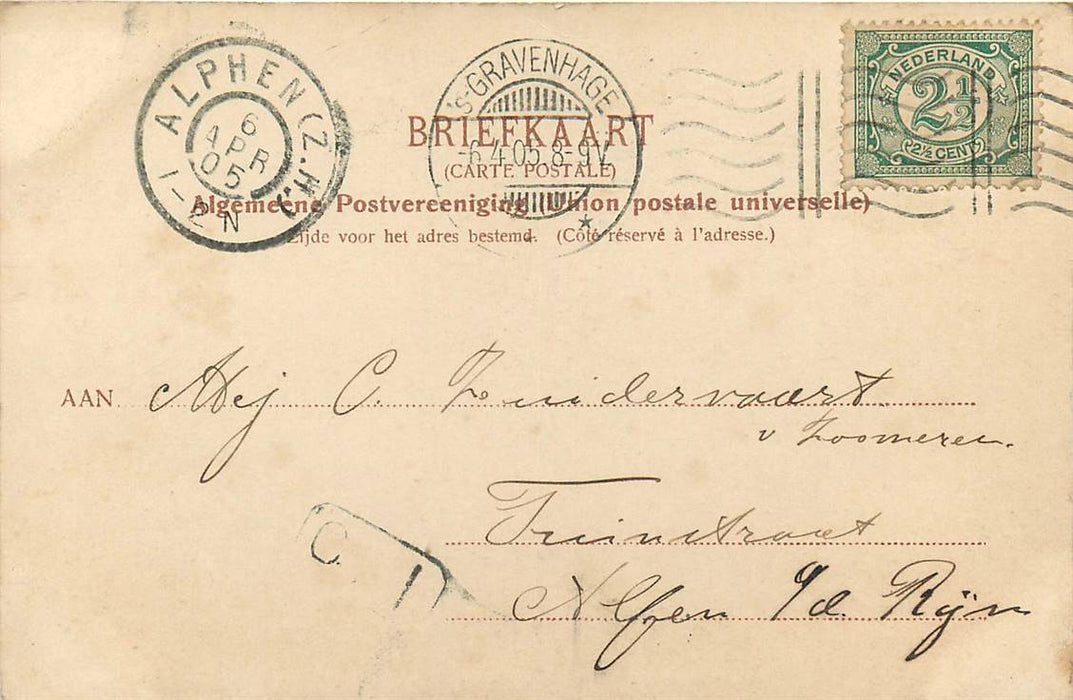 ALPHEN (Z.H.)
6
APR
05
1-2N
'S-GRAVENHAGE
-6.4.05.8-9V.
NEDERLAND
2½
(2½ CENT)
BRIEFKAART
(CARTE POSTALE)
Algemeene Postvereeniging (Union postale universelle)
Zijde voor het adres bestemd. (Côté réservé à l'adresse.)
AAN Mej C. Zuidervaart
v Zoomeren.
Tuinstraat
Alfen a/d. Rijn
C